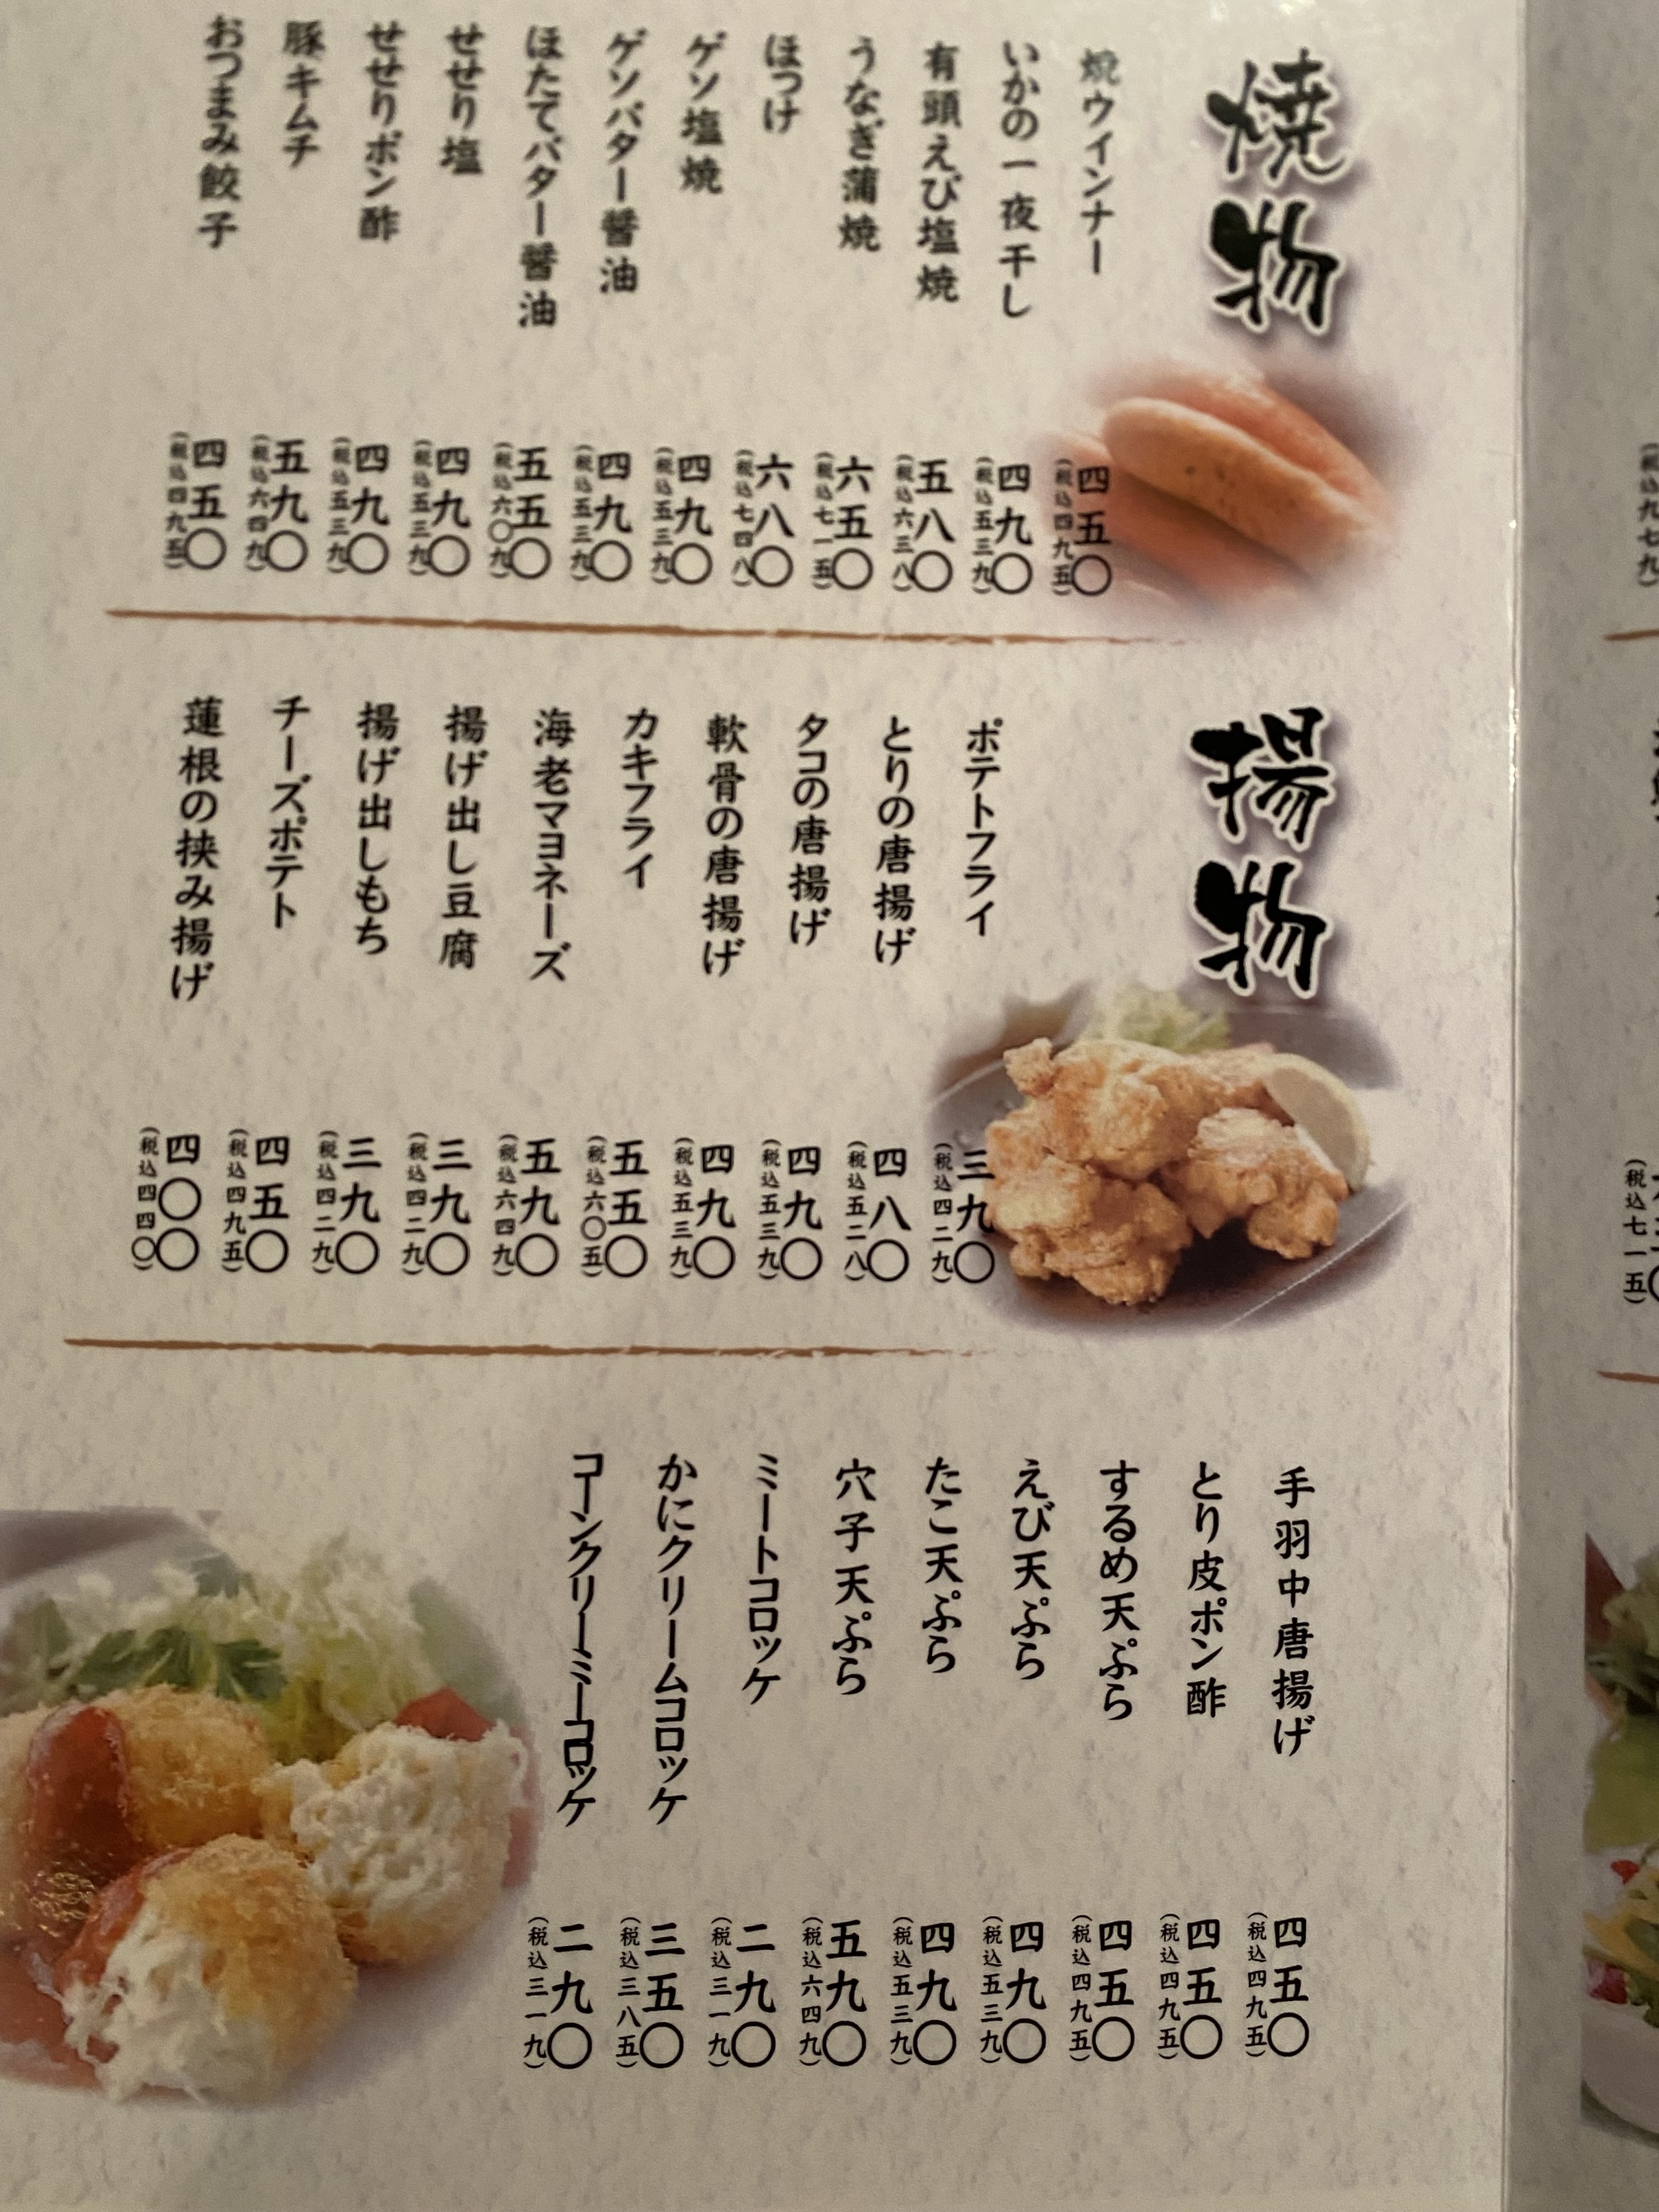 焼物
焼ウィンナー
四五〇
(税込四九五)
いかの一夜干し
四九〇
(税込五三九)
有頭えび塩焼
五八〇
(税込六三八)
うなぎ蒲焼
六五〇
(税込七一五)
ほっけ
六八〇
(税込七四八)
ゲソ塩焼
四九〇
(税込五三九)
ゲソバター醤油
四九〇
(税込五三九)
ほたてバター醤油
五五〇
(税込六〇九)
せせり塩
四九〇
(税込五三九)
せせりポン酢
四九〇
(税込五三九)
豚キムチ
五九〇
(税込六四九)
おつまみ餃子
四五〇
(税込四九五)
揚物
ポテトフライ
三九〇
(税込四二九)
とりの唐揚げ
四八〇
(税込五二八)
タコの唐揚げ
四九〇
(税込五三九)
軟骨の唐揚げ
四九〇
(税込五三九)
カキフライ
五五〇
(税込六〇五)
海老マヨネーズ
五九〇
(税込六四九)
揚げ出し豆腐
三九〇
(税込四二九)
揚げ出しもち
三九〇
(税込四二九)
チーズポテト
四五〇
(税込四九五)
蓮根の挟み揚げ
四〇〇
(税込四四〇)
手羽中唐揚げ
四五〇
(税込四九五)
とり皮ポン酢
四五〇
(税込四九五)
するめ天ぷら
四五〇
(税込四九五)
えび天ぷら
四九〇
(税込五三九)
たこ天ぷら
四九〇
(税込五三九)
穴子天ぷら
五九〇
(税込六四九)
ミートコロッケ
二九〇
(税込三一九)
かにクリームコロッケ
三五〇
(税込三八五)
コーンクリーミーコロッケ
二九〇
(税込三一九)